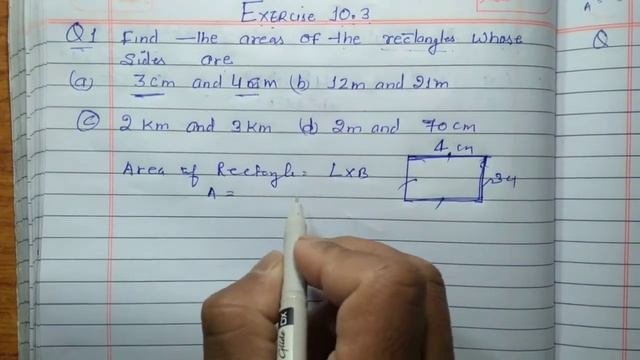 EXERCISE 10.3
Q1 Find the areas of the rectangles whose
Sides are
(a) 3cm and 4cm (b) 12m and 21m
(c) 2 Km and 3Km (d) 2m and 70 cm
4 cm
Area of Rectangle = L×B
A =
Q
A =